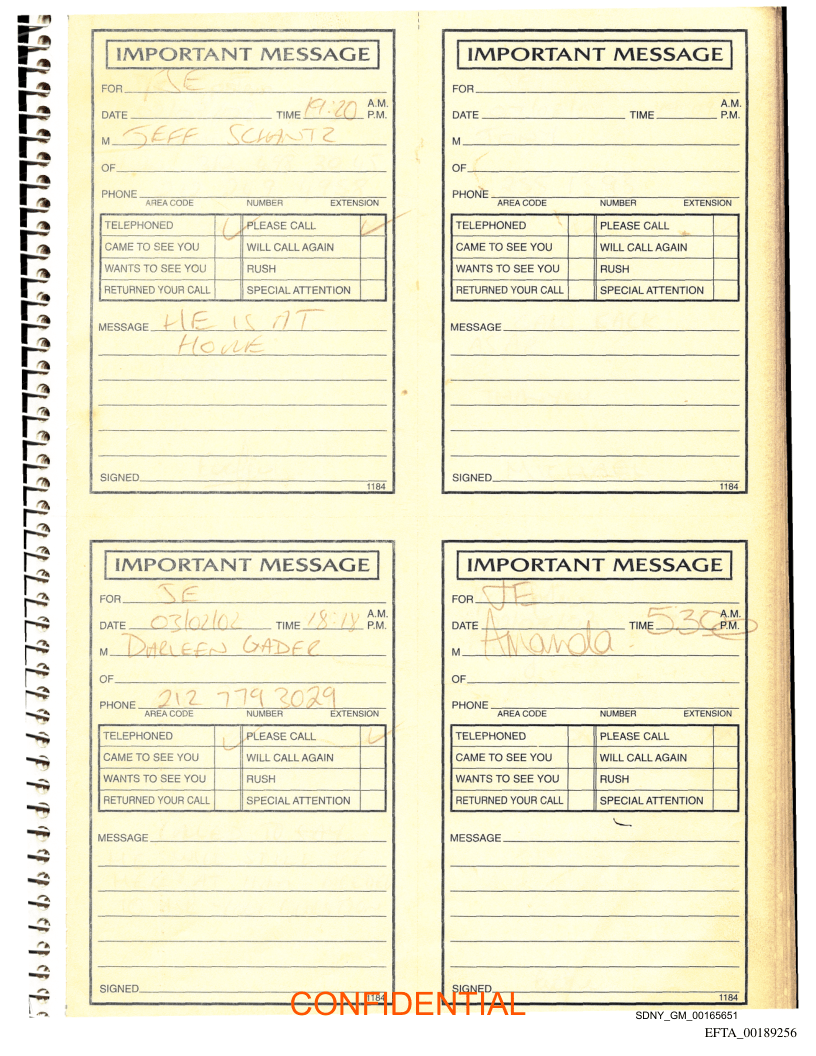 IMPORTANT MESSAGE
FOR JE
DATE TIME 19:20 A.M. P.M.
M JEFF SCHANTZ
OF
PHONE
AREA CODE NUMBER EXTENSION
TELEPHONED ✓ PLEASE CALL ✓
CAME TO SEE YOU WILL CALL AGAIN
WANTS TO SEE YOU RUSH
RETURNED YOUR CALL SPECIAL ATTENTION
MESSAGE HE IS AT
HOME
SIGNED
1184
IMPORTANT MESSAGE
FOR
DATE TIME A.M. P.M.
M
OF
PHONE
AREA CODE NUMBER EXTENSION
TELEPHONED PLEASE CALL
CAME TO SEE YOU WILL CALL AGAIN
WANTS TO SEE YOU RUSH
RETURNED YOUR CALL SPECIAL ATTENTION
MESSAGE
SIGNED
1184
IMPORTANT MESSAGE
FOR JE
DATE 03/02/02 TIME 18:18 A.M. P.M.
M DARLEEN GADER
OF
PHONE 212 779 3029
AREA CODE NUMBER EXTENSION
TELEPHONED ✓ PLEASE CALL ✓
CAME TO SEE YOU WILL CALL AGAIN
WANTS TO SEE YOU RUSH
RETURNED YOUR CALL SPECIAL ATTENTION
MESSAGE
SIGNED
1184
IMPORTANT MESSAGE
FOR JE
DATE TIME 530 A.M. P.M.
M Amanda
OF
PHONE
AREA CODE NUMBER EXTENSION
TELEPHONED PLEASE CALL
CAME TO SEE YOU WILL CALL AGAIN
WANTS TO SEE YOU RUSH
RETURNED YOUR CALL SPECIAL ATTENTION
MESSAGE
SIGNED
1184
CONFIDENTIAL
SDNY_GM_00165651
EFTA_00189256